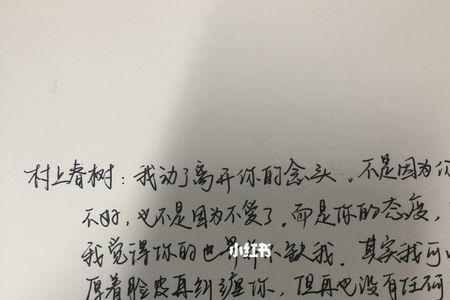 村上春树：我动了离开你的念头。不是因为你
不好，也不是因为不爱了。而是你的态度，
小红书
我觉得你的世界不缺我。其实我可以
厚着脸皮再纠缠你，但再也没有任何